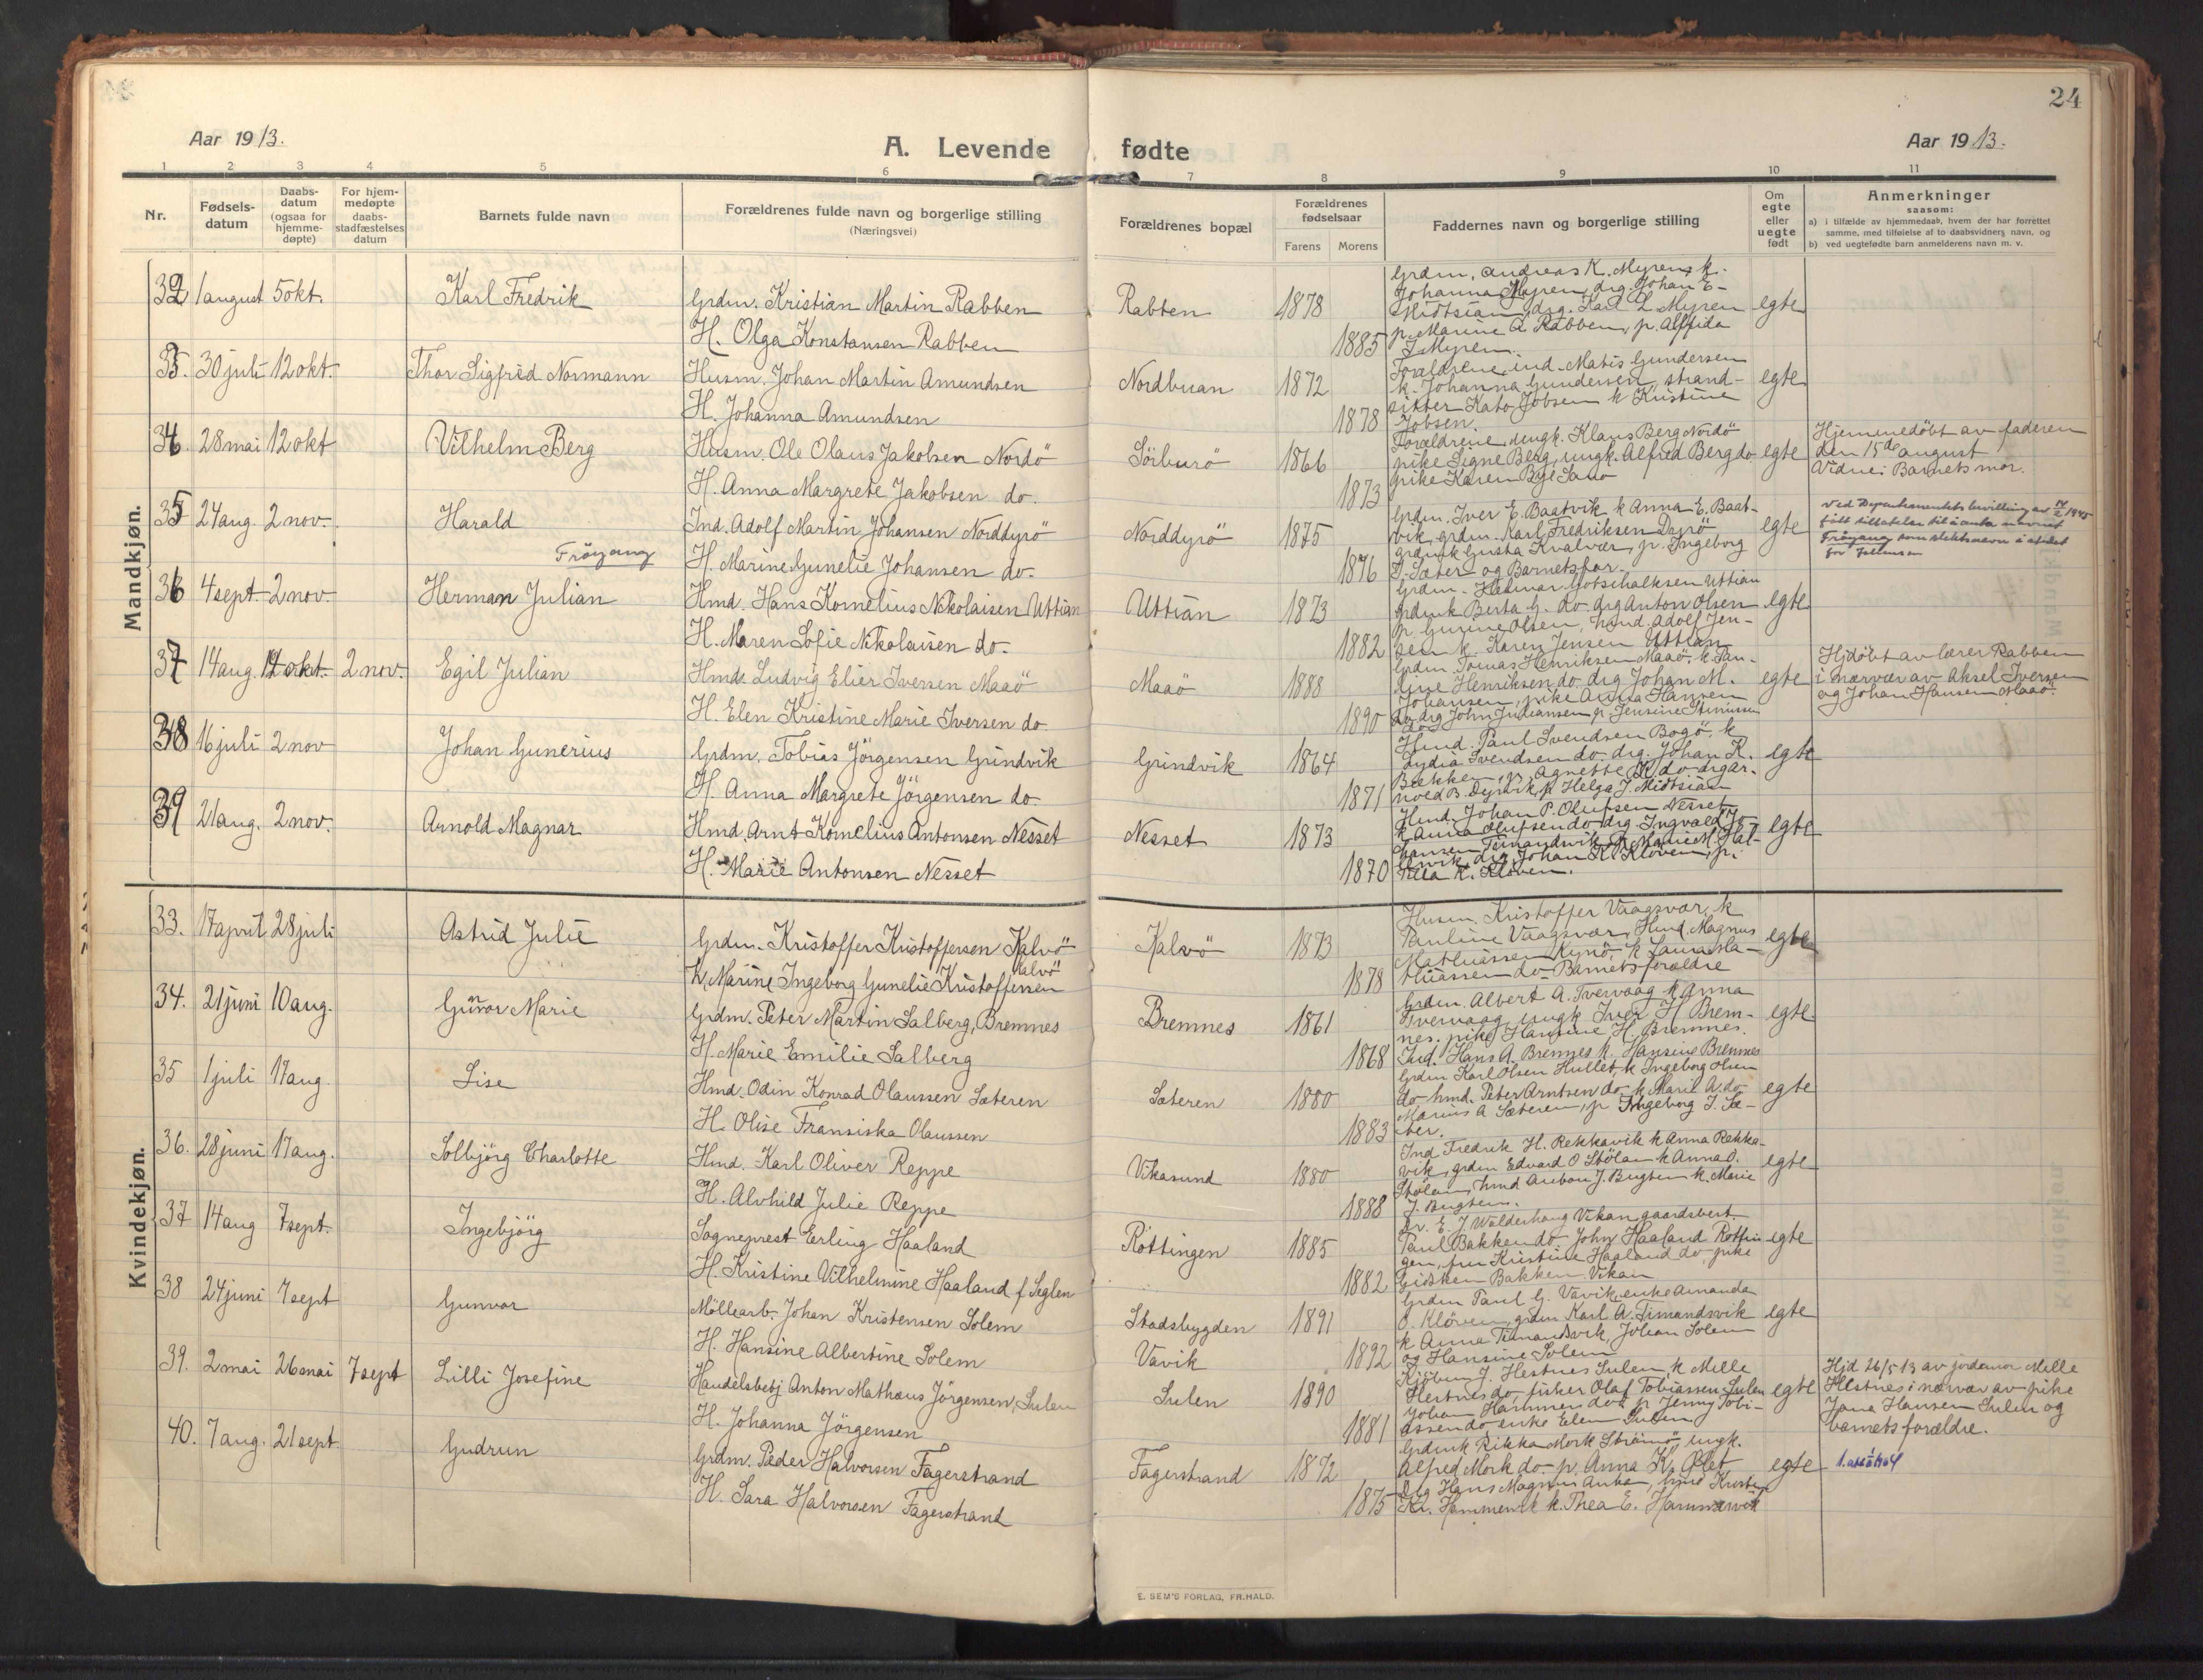 24
Aar 1913.
A. Levende fødte
Aar 1913.
1 2 3 4 5 6 7 8 9 10 11
Nr.
Fødsels-
datum
Daabs-
datum
(ogsaa for
hjemme-
døpte)
For hjem-
medøpte
daabs-
stadfæstelses
datum
Barnets fulde navn
Forældrenes fulde navn og borgerlige stilling
(Næringsvei)
Forældrenes bopæl
Forældrenes
fødselsaar
Farens Morens
Faddernes navn og borgerlige stilling
Om
egte
eller
uegte
født
Anmerkninger
saasom:
a) i tilfælde av hjemmedaab, hvem der har forrettet
samme, med tilføielse af to daabsvidners navn, og
b) ved uegtefødte barn anmelderens navn m. v.
Mandkjøn.
32 1 august 5 okt. Karl Fredrik
Grdm. Kristian Martin Rabben
H. Olga Konstansen Rabben
Rabben 1878 1885
Grdm. Andreas K. Myren, k.
Johanna Myren, drg. Johan E-
Midtsian, drg. Karl L Myren
p. Marine A Rabben, p. Alffida
J. Myren.
egte
33. 30 juli 12 okt. Thor Sigfred Normann
Husm. Johan Martin Amundsen
H. Johanna Amundsen
Nordbuan 1872 1878
Forældrene, ind. Matis Gundersen
k. Johanna Gundersen, strand-
sitter Kato Jobsen k Kristine
Jobsen.
egte
34. 28 mai 12 okt Vilhelm Berg
Husm. Ole Olaus Jakobsen Nordö
H. Anna Margrete Jakobsen do.
Sörburö 1866 1873
Forældrene, ungk. Klaus Berg Nordö
pike Signe Berg, ungk. Alfred Berg do
pike Karen Bye Sandö
egte
Hjemmedöbt av faderen
den 15de august
Vidne: Barnets mor.
35 24 aug. 2 nov. Harald
Fröyang
Ind. Adolf Martin Johansen Norddyrö
H. Marine Gunelie Johansen do.
Norddyrö 1875 1876
Grdm. Iver E. Baatvik k Anna E. Baat-
vik, grdm. Karl Fredriksen Dyrö
grdmk Gusta Kvalvær, p. Ingeborg
J. Sæter og Barnets far.
egte
Ved Departementets bevilling av 1945
fått tillatelse til å anta navnet
Fröyang som slektsnavn i stedet
for Johansen
36 4 sept. 2 nov. Herman Julian
Hmd. Hans Kornelius Nikolaisen Uttian
H. Maren Sofie Nikolaisen do.
Uttian 1873 1882
Grdm. Halvar Gotschalksen Uttian
grdmk Berta G. do. drg Anton Olsen
p. Gurine Olsen, hmd. Adolf Jen-
sen k. Karen Jensen Uttian
egte
37 14 aug. 12 okt. 2 nov. Egil Julian
Hmd. Ludvig Elier Iversen Maaö
H. Elen Kristine Marie Iversen do
Maaö 1888 1890
Grdm. Tomas Henriksen Maaö, k. Tan-
line Henriksen do. drg Johan M.
Johansen, pike Anna Hansen
do, drg John Julieansen p. Jensine
do.
egte
Hjdöbt av lærer Rabben
i nærvær av Aksel Iversen
og Johan Hansen Maaö.
38 16 juli 2 nov Johan Gunerius
Grdm. Tobias Jörgensen Grindvik
H. Anna Margrete Jörgensen do.
Grindvik 1864 1871
Hmd. Paul Svendsen Bogö, k.
Lydia Svendsen do. drg. Johan K.
Bakken, p. Agnette K. do. drg Ar-
nold B. Dyrvik, p Helga J. Midtsian
egte
39 21 aug. 2 nov. Arnold Magnar
Hmd. Arnt Kornelius Antonsen Nesset
H. Marie Antonsen Nesset
Nesset 1873 1870
Hmd. Johan P. Olufsen Nesset
k Anna Olufsen do drg Ingvald Jo-
hansen Timandsvik, p. Marie M. Hal-
drg Johan K. Klöven, p.
K. Klöven.
egte
Kvindekjøn.
33. 17 april 28 juli Astrid Julie
Grdm. Kristoffer Kristoffersen Kalvö
K. Marine Ingeborg Gunelie Kristoffersen Kalvö
Kalvö 1873 1878
Husm. Kristoffer Vaagsvær, k
Pauline Vaagsvær, Hmd. Magnus
Mathiassen Kynö, k Laura Ma-
thiassen do. Barnets forældre
egte
34. 21 juni 10 aug. Gunvor Marie
Grdm. Peter Martin Salberg, Bremnes
H. Marie Emilie Salberg
Bremnes 1861 1868
Grdm. Albert A. Tvervaag k Anna
Tvervaag ungk Iver H Brem-
nes. pike Hansine H. Bremnes.
Ind. Hans A. Bremnes k. Hansine Bremnes
egte
35 1 juli 17 aug. Lise
Hmd. Odin Konrad Olaussen Sæteren
H. Olise Fransiska Olaussen
Sæteren 1880 1883
Grdm Karl Olsen Hullet, k Ingeborg Olsen
do. hmd. Peter Arntsen do. k Marit A. do
Marius A Sæteren, p Ingeborg J. Sæ-
ter.
egte
36. 28 juni 17 aug. Solbjörg Charlotte
Hmd. Karl Oliver Reppe
H. Alvhild Julie Reppe
Vikasund 1880 1888
Ind Fredrik H. Rekkavik k Anna Rekka-
vik, grdm Edvard O Stölan k Anna O.
Stölan, hmd Anton J. Bugten k. Marie
J. Bugten.
egte
37 14 aug 7 sept. Ingebjörg
Sogneprest Erling Haaland
H. Kristine Vilhelmine Haaland f. Seglen
Röttingen 1885 1882
Dr. E. J Walderhaug Vikan, gaardsbest
Paul Bakken do. John Haaland Rottin
gen, fru Kristine Haaland do, pike
Gidsken Bakken Vikan
egte
38 24 juni 7 sept Gunvor
Möllearb. Johan Kristensen Solem
H. Hansine Albertine Solem
Stadsbygden
Vavik
1891 1892
Grdm Paul G. Vavik, enke Amanda
O. Klöven, grdm Karl A. Timandsvik
k Anna Timandsvik, Johan Solem
og Hansine Solem
egte
39. 2 mai 26 mai 7 sept Lilli Josefine
Handelsbetj Anton Mathæus Jörgensen, Sulen
H. Johanna Jörgensen
Sulen 1890 1881
Kjöbm J. Hestnes Sulen k Mille
Hestnes do. fisker Olaf Tobiassen Sulen
Johan Hammer do. p Jenny Tobi-
assen do, enke Elen Sulen
egte
Hjd 26/5 13 av jordmor Mille
Hestnes i nærvær av pike
Jana Hansen Sulen og
barnets forældre.
40. 7 aug. 21 sept. Gudrun
Grdm. Peder Halvorsen Fagerstrand
H. Sara Halvorsen Fagerstrand
Fagerstrand 1872 1875
Grdmk Rikka Mork Strömö, ungk.
Alfred Mork do. p. Anna K. Ölet
Drg Hans Magnus Antson, hmd Kristof
Kr. Hammervik k. Thea E. Hammervik
egte
E. SEM'S FORLAG, FR.HALD.